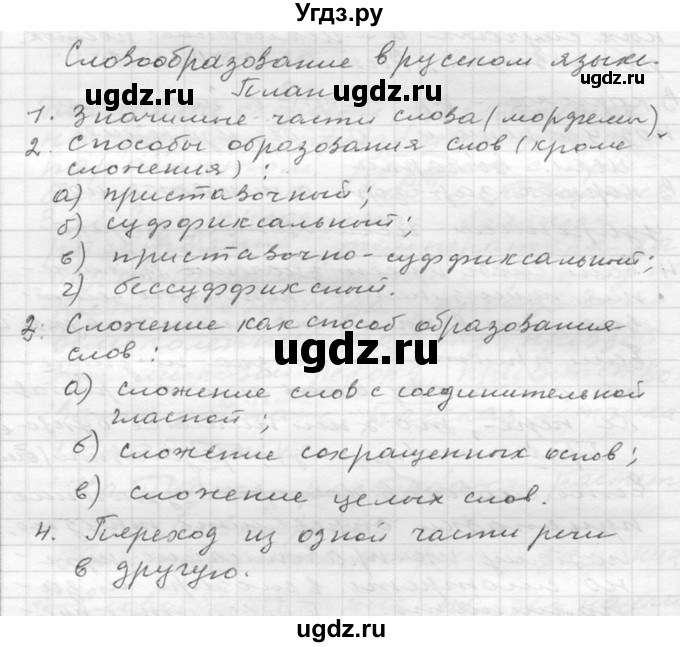 Угдз.ру
Словообразование в русском языке.
ugdz.ru План ugdz.ru
1. Значимые части слова (морфемы)
2. Способы образования слов (кроме
сложения) :
а) приставочный;
б) суффиксальный;
в) приставочно-суффиксальный;
г) бессуффиксный.
3. Сложение как способ образования
ugdz.ru
слов :
а) сложение слов с соединительной
гласной;
б) сложение сокращенных основ;
в) сложение целых слов.
4. Переход из одной части речи
в другую.
ugdz.ru
ugdz.ru